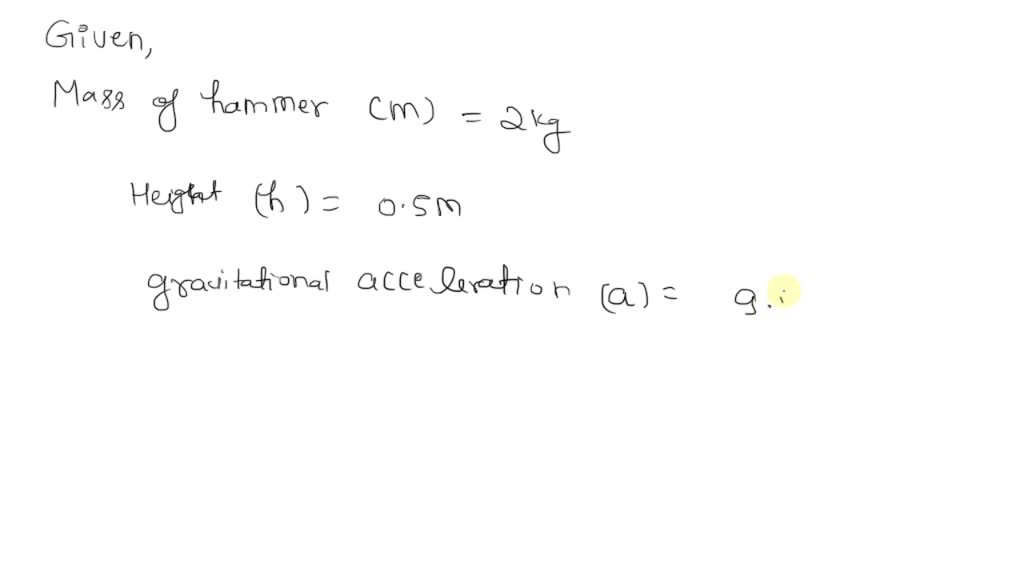 Given,
Mass of hammer (m) = 2kg
Height (h) = 0.5m
gravitational acceleration (a) = 9.